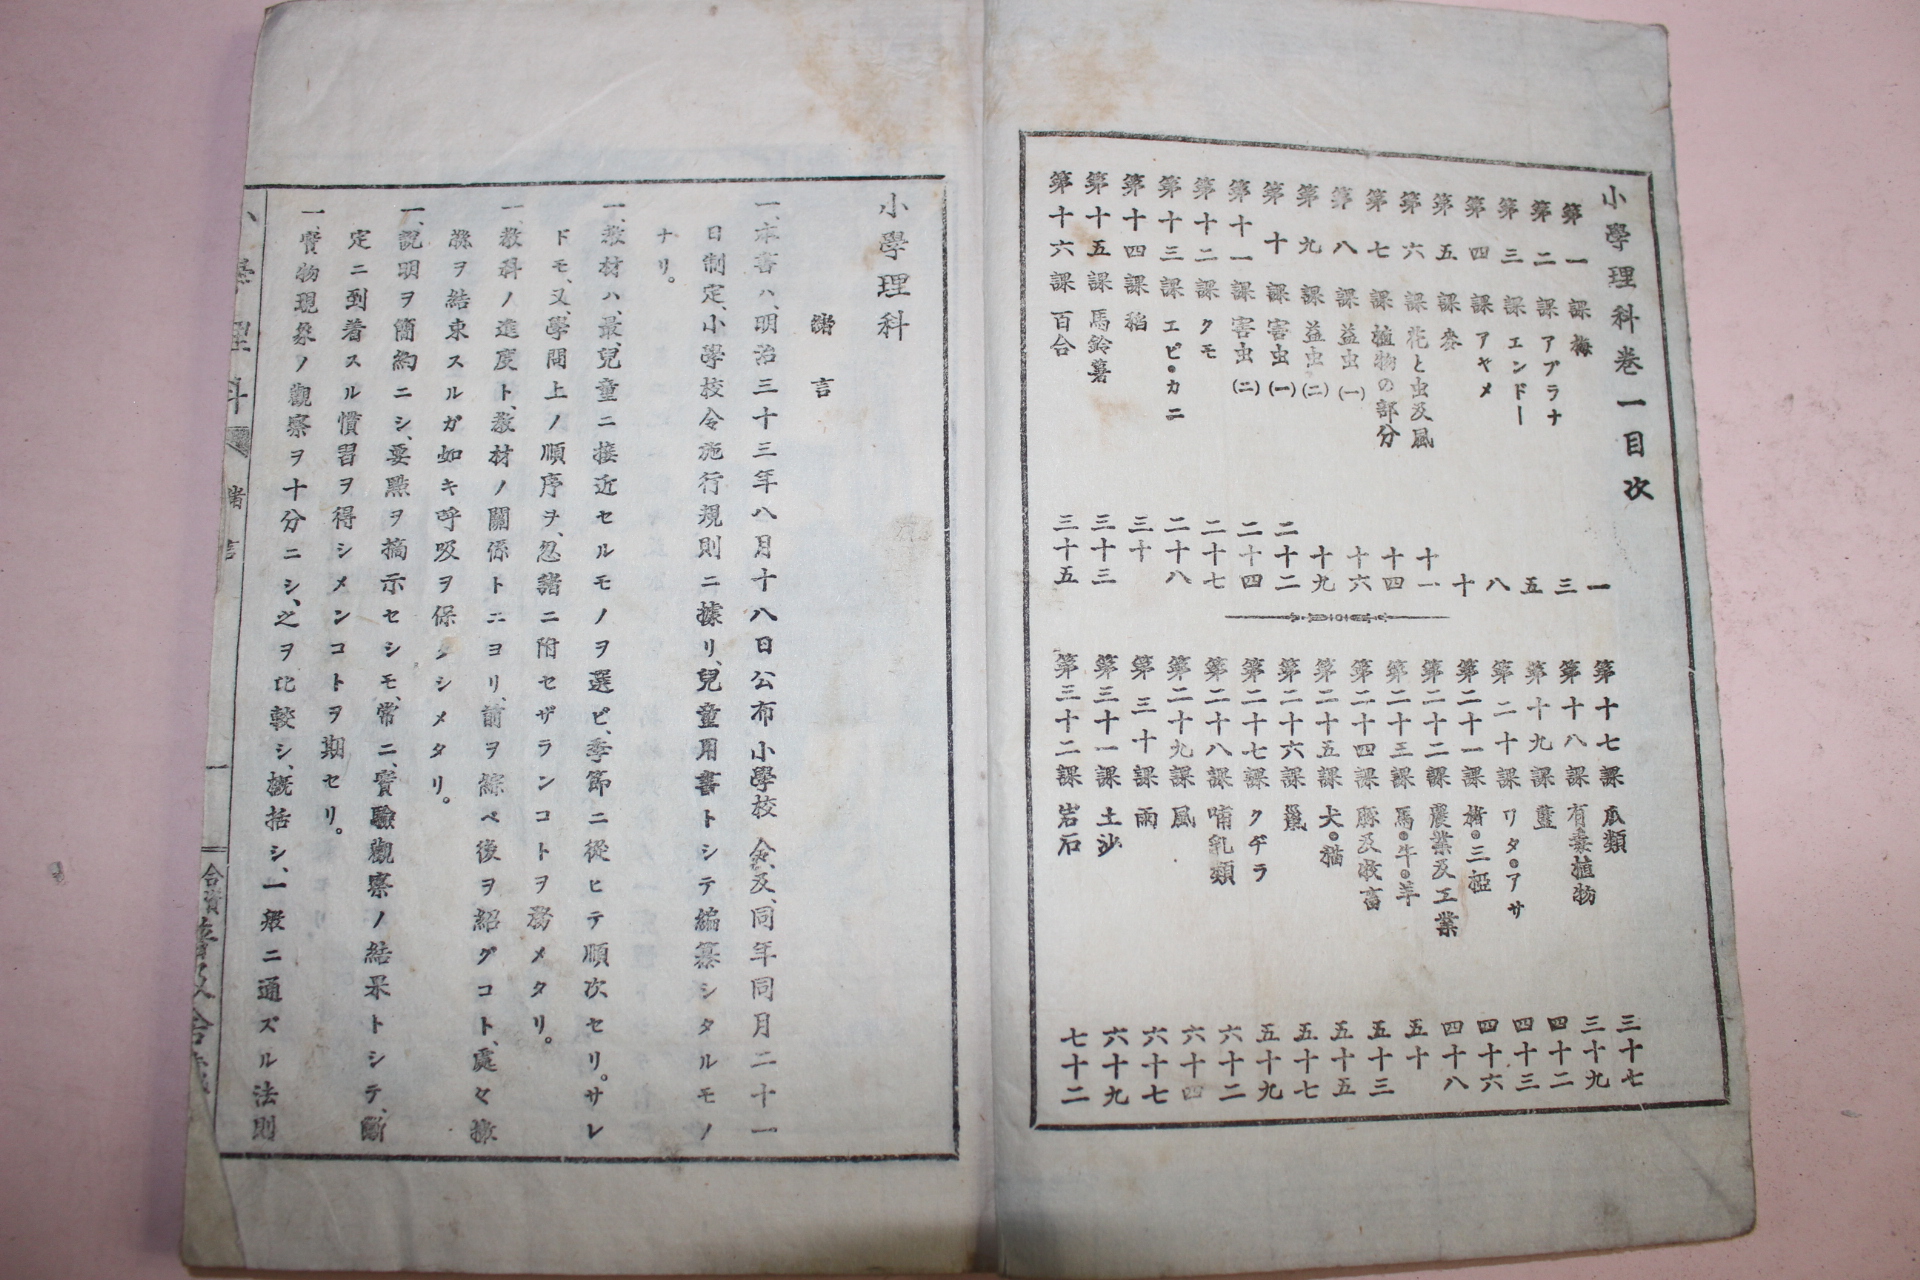 小學理科卷一目次
第一課 梅 一
第二課 アブラナ 三
第三課 エンドー 五
第四課 アヤメ 八
第五課 麥 十
第六課 花と虫及風 十一
第七課 植物の部分 十四
第八課 益虫(一) 十六
第九課 益虫(二) 十九
第十課 害虫(一) 二十二
第十一課 害虫(二) 二十四
第十二課 クモ 二十七
第十三課 エビ。カニ 二十八
第十四課 稻 三十
第十五課 馬鈴薯 三十三
第十六課 百合 三十五
第十七課 瓜類 三十七
第十八課 有毒植物 三十九
第十九課 藍 四十二
第二十課 ワタ。アサ 四十三
第二十一課 楮。三椏 四十六
第二十二課 農業及工業 四十八
第二十三課 馬。牛。羊 五十
第二十四課 豚及牧畜 五十三
第二十五課 犬。猫 五十五
第二十六課 鼠 五十七
第二十七課 クヂラ 五十九
第二十八課 哺乳類 六十二
第二十九課 風 六十四
第三十課 雨 六十七
第三十一課 土沙 六十九
第三十二課 岩石 七十二
小學理科
緒言
一、本書ハ、明治三十三年八月十八日公布小學校令、及、同年同月二十一
日制定、小學校令施行規則ニ據リ、兒童用書トシテ編纂シタルモノ
ナリ。
一、教材ハ、最、兒童ニ接近セルモノヲ選ビ、季節ニ從ヒテ順次セリ。サレ
ドモ、又、學問上ノ順序ヲ、忽諸ニ附セザランコトヲ務メタリ。
一、教科ノ進度ト、教材ノ關係トニヨリ、前ヲ綜ベ後ヲ紹グコト、處々
ヲ結束スルガ如キ呼吸ヲ保タシメタリ。
一、說明ヲ簡約ニシ、要點ヲ摘示セシモ、常ニ、實驗觀察ノ結果トシテ、斷
定ニ到着スル慣習ヲ得シメンコトヲ期セリ。
一、實物現象ノ觀察ヲ十分ニシ、之ヲ比較シ、概括シ、一般ニ通ズル法則
小學理科 緒言 一 合資